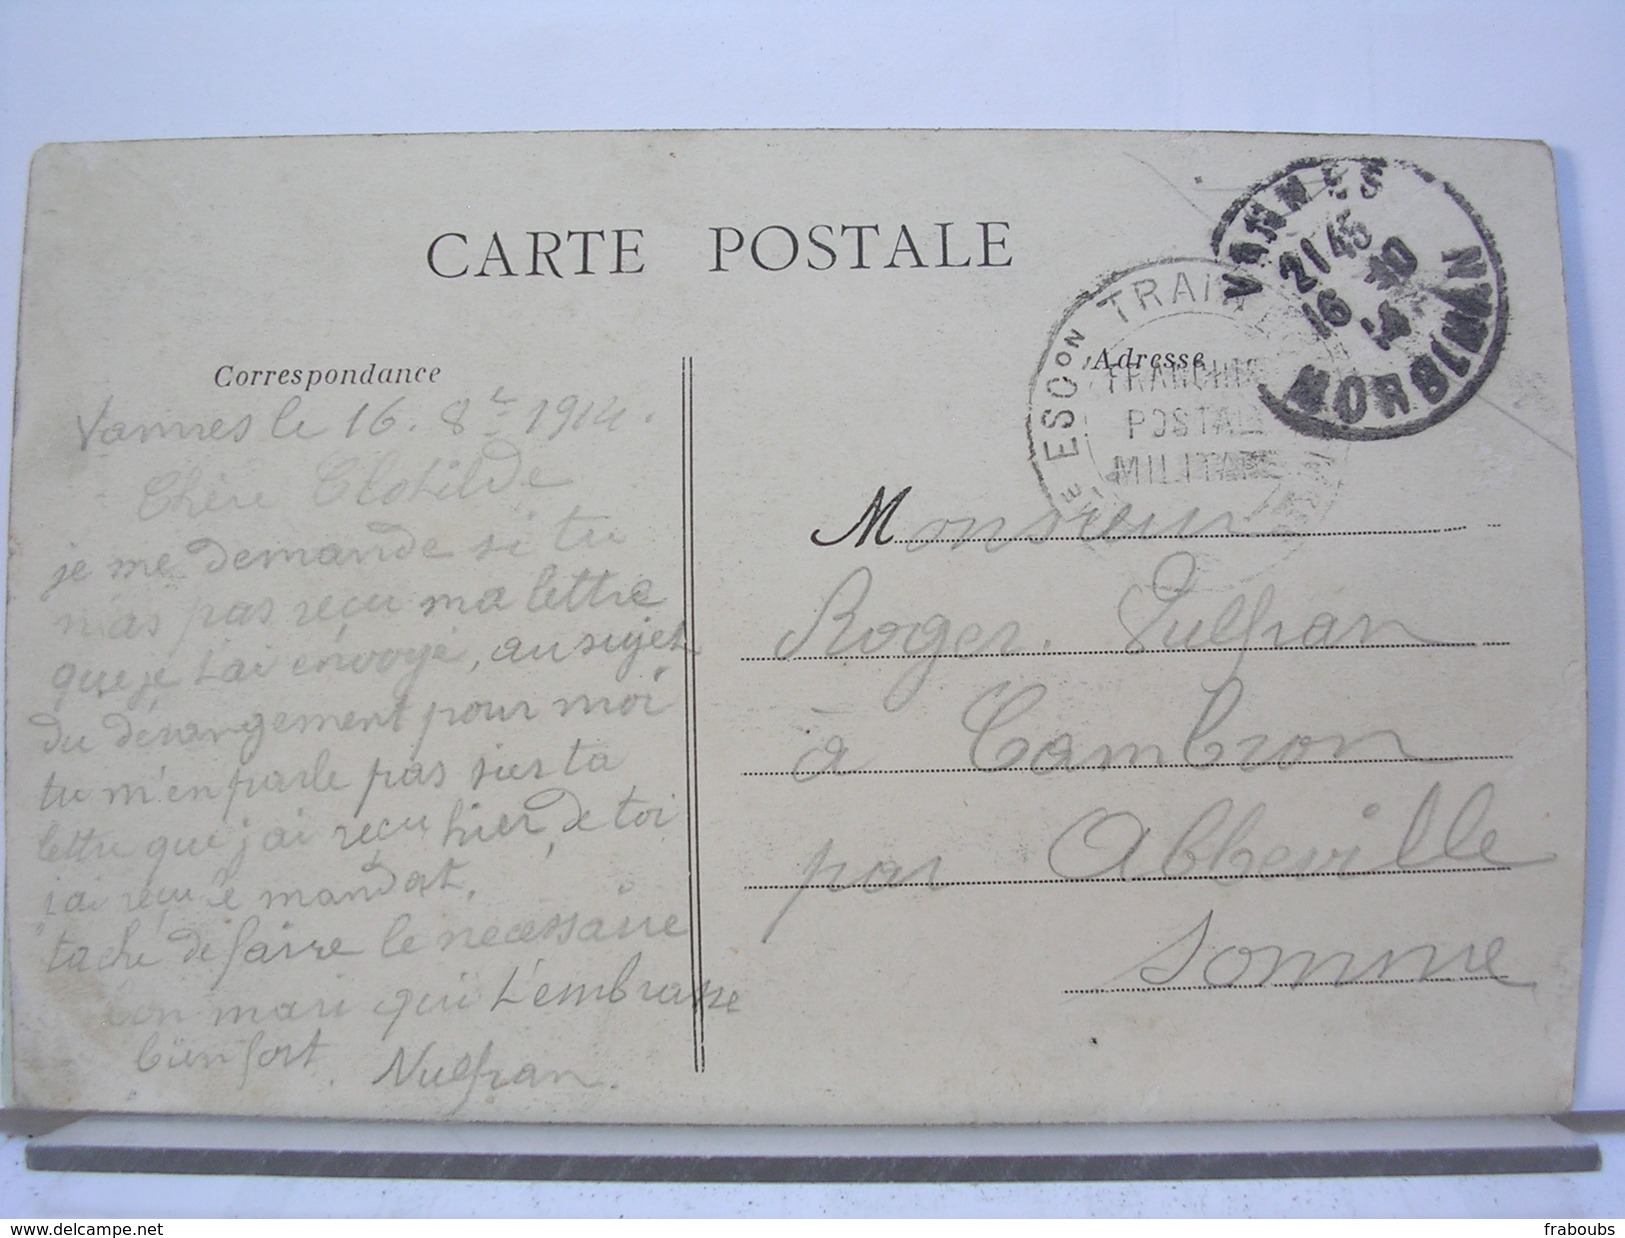 CARTE POSTALE
Correspondance
Adresse
VANNES
21 45
16 10
14
MORBIHAN
ESCon TRAIN
FRANCHISE
POSTALE
MILITAIRE
Vannes le 16. 8bre 1914.
Chère Clotilde
je me demande si tu
m'as pas reçu ma lettre
que je t'ai envoyé, au sujet
du dérangement pour moi
tu m'en parle pas sur ta
lettre que j'ai reçu hier, de toi
j'ai reçu le mandat,
tache de faire le necessaire
ton mari qui t'embrasse
bien fort. Vulfran.
Monsieur
Roger. Vulfran
à Cambron
par Abbeville
Somme
www.delcampe.net
fraboubs